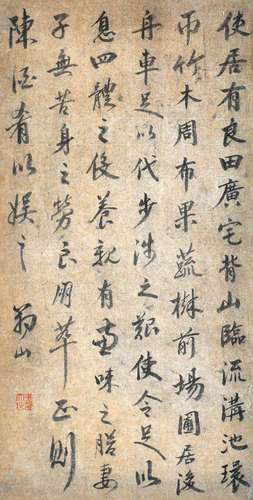 使居有良田廣宅背山臨流溝池環
帀竹木周布果蔬樹前場圃居後
舟車足以代步涉之艱使令足以
息四體之役養親有兼味之膳妻
子無苦身之勞良朋萃止則
陳酒肴以娛之 翁山